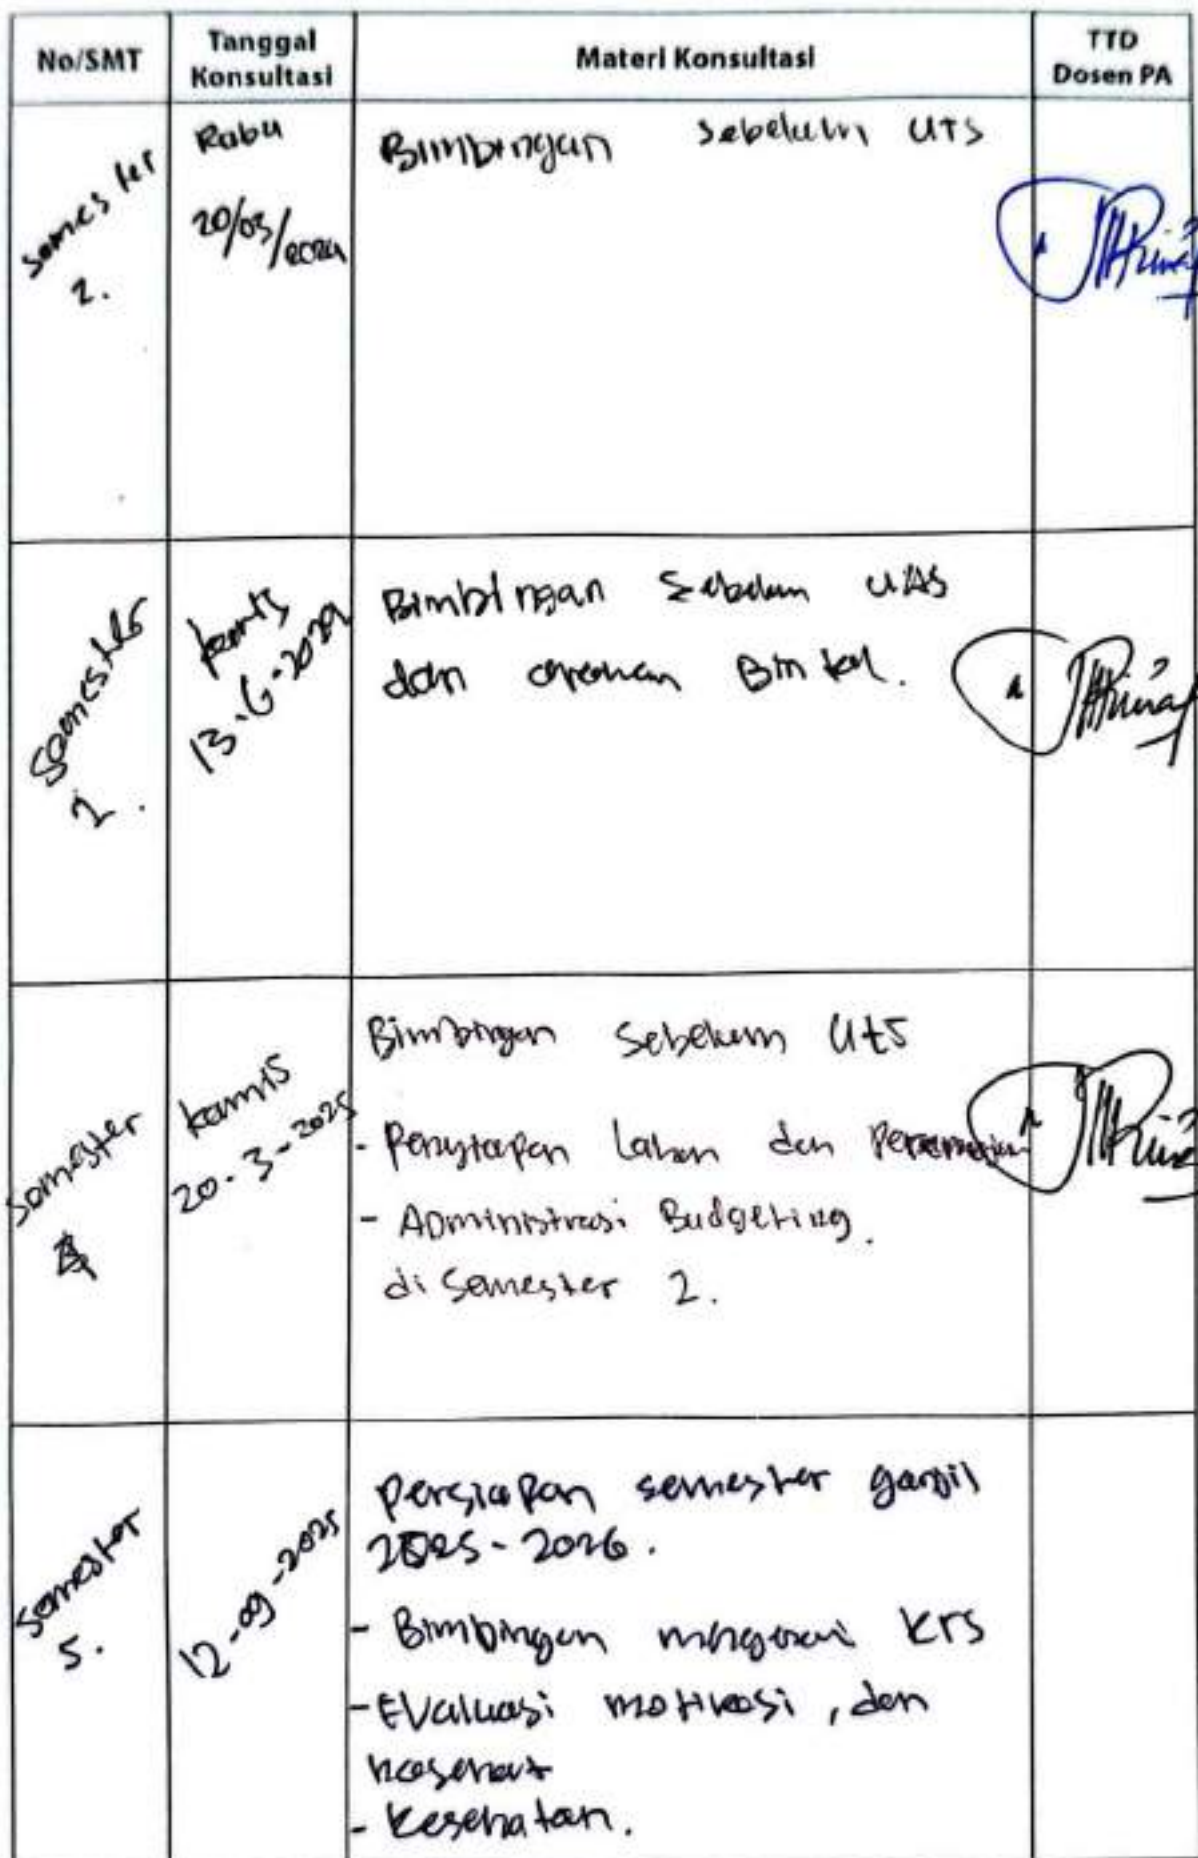 No/SMT
Tanggal
Konsultasi
Materi Konsultasi
TTD
Dosen PA
Semester
2.
Rabu
20/03/2024
Bimbingan sebelum UTS
Semester
2.
kamis
13-6-2024
Bimbingan sebelum UAS
dan arahan Bintal.
Semester
4
kamis
20-3-2025
Bimbingan sebelum UTS
- Penyiapan Lahan dan
- Administrasi Budgeting.
di semester 2.
Semester
5.
12-09-2025
Persiapan semester ganjil
2025-2026.
- Bimbingan mengenai KRS
- Evaluasi motivasi, dan
nasehat
- Kesehatan.